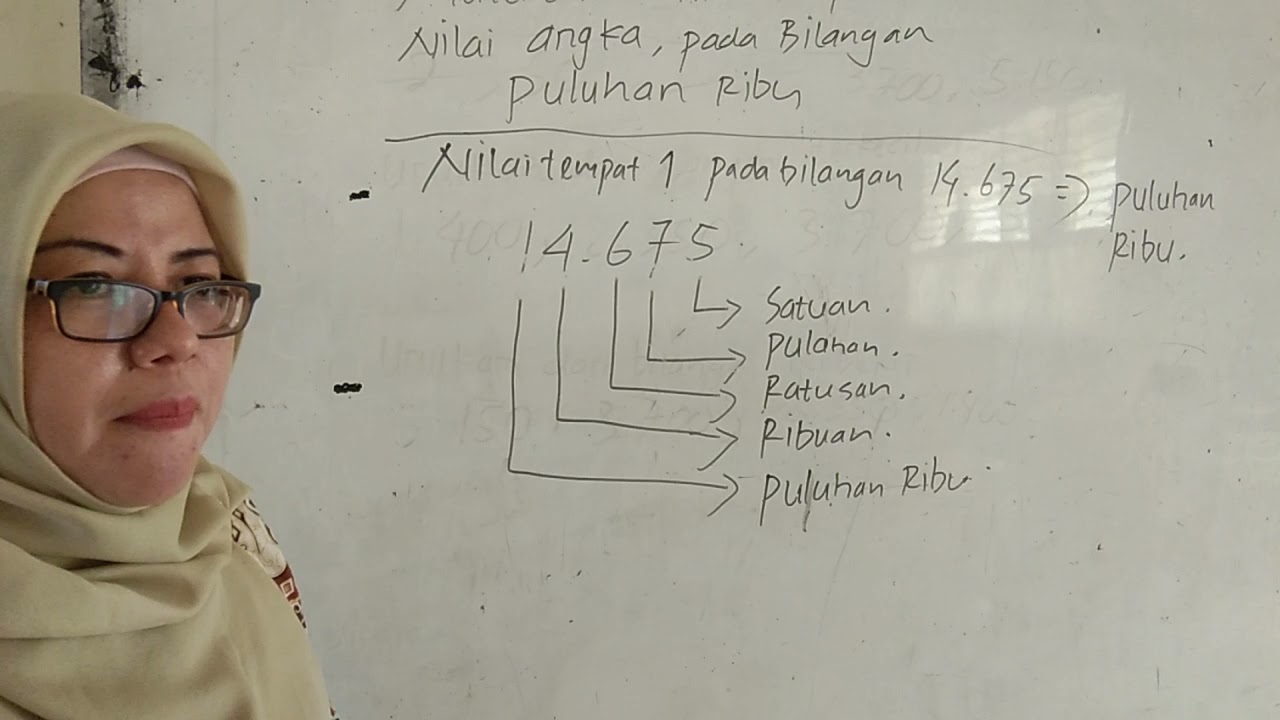 Nilai angka, pada Bilangan
Puluhan Ribu
Nilai tempat 1 pada bilangan 14.675 => Puluhan
Ribu.
14.675
Satuan.
Pulahan.
Ratusan.
Ribuan.
Puluhan Ribu